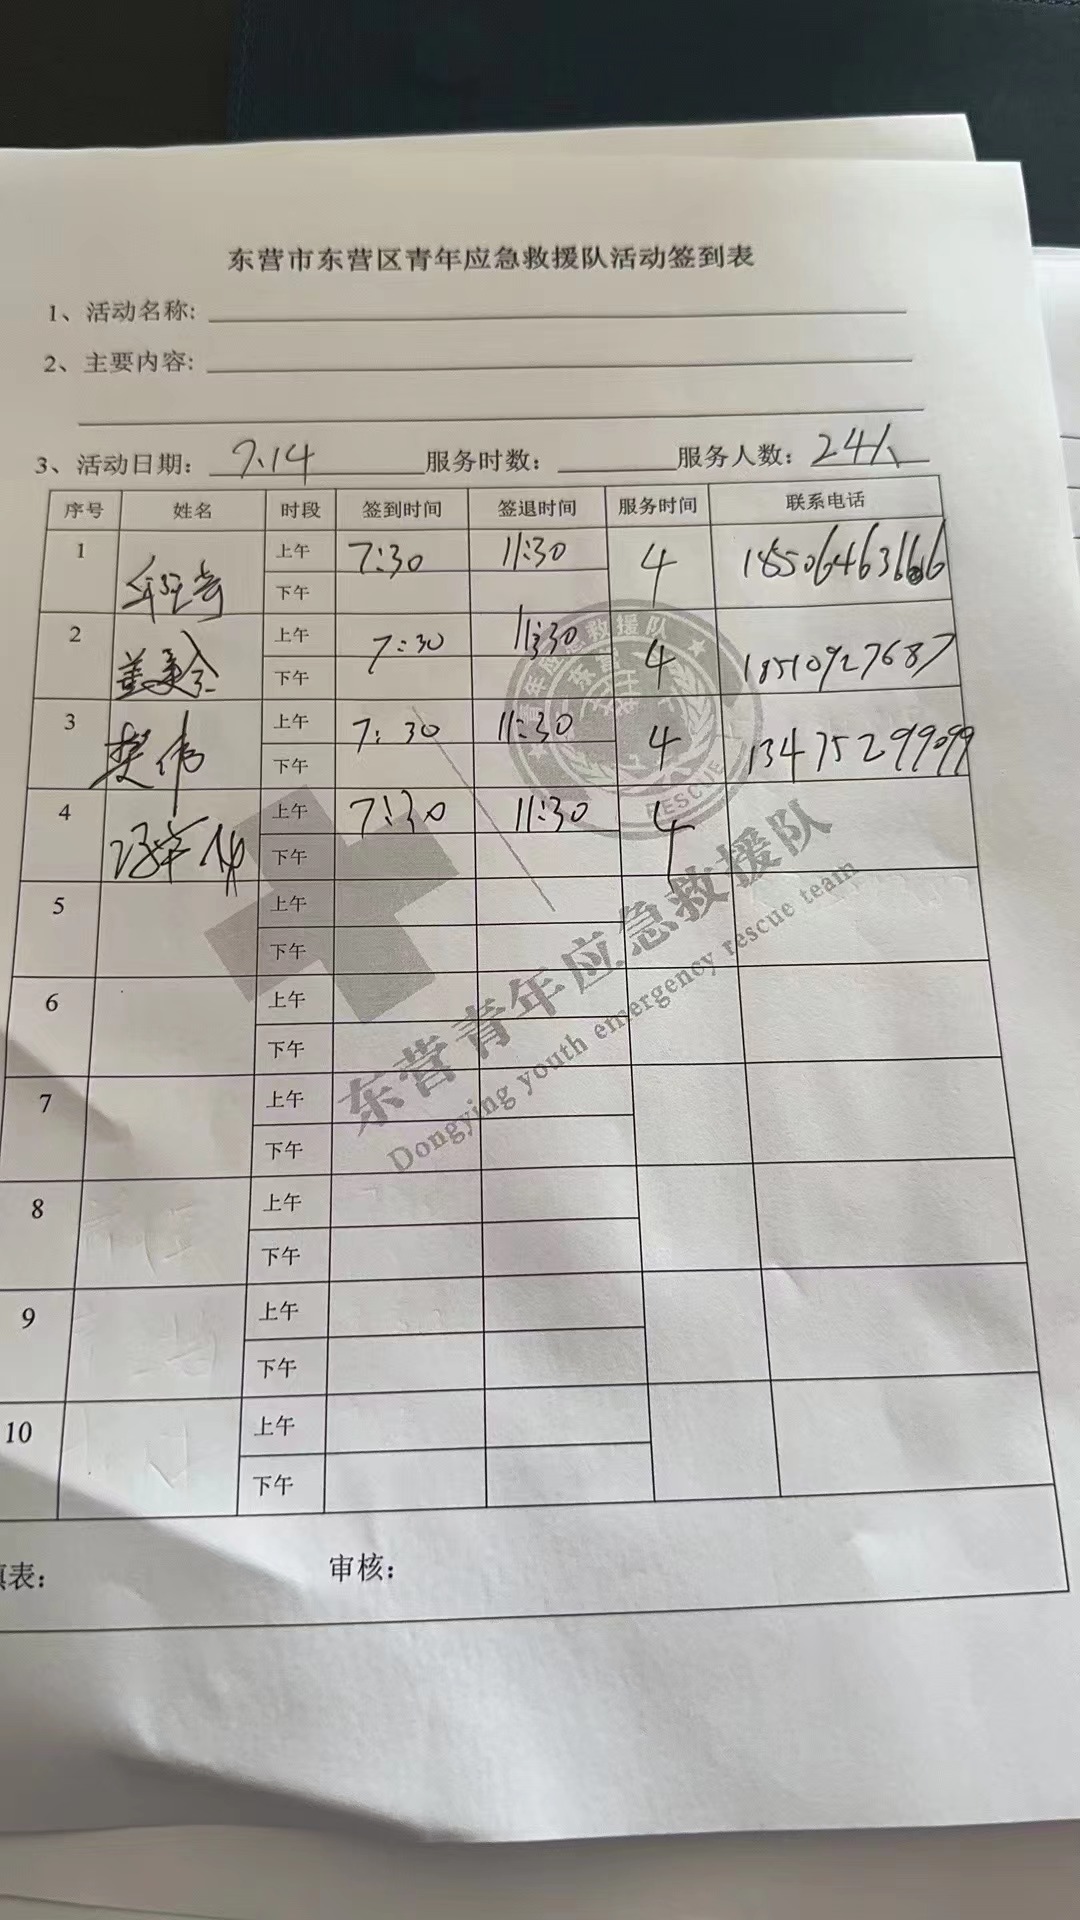 东营市东营区青年应急救援队活动签到表
1、活动名称:
2、主要内容:
3、活动日期: 7.14 服务时数: 服务人数: 24人
序号 姓名 时段 签到时间 签退时间 服务时间 联系电话
1 上午 7:30 11:30 4
下午
2 上午 7:30 11:30 4 18510927687
下午
3 樊伟 上午 7:30 11:30 4 13475299099
下午
4 上午 7:30 11:30 4
下午
5 上午
下午
6 上午
下午
7 上午
下午
8 上午
下午
9 上午
下午
10 上午
下午
填表: 审核:
青年应急救援队
东营
RESCUE
东营青年应急救援队
Dongying youth emergency rescue team